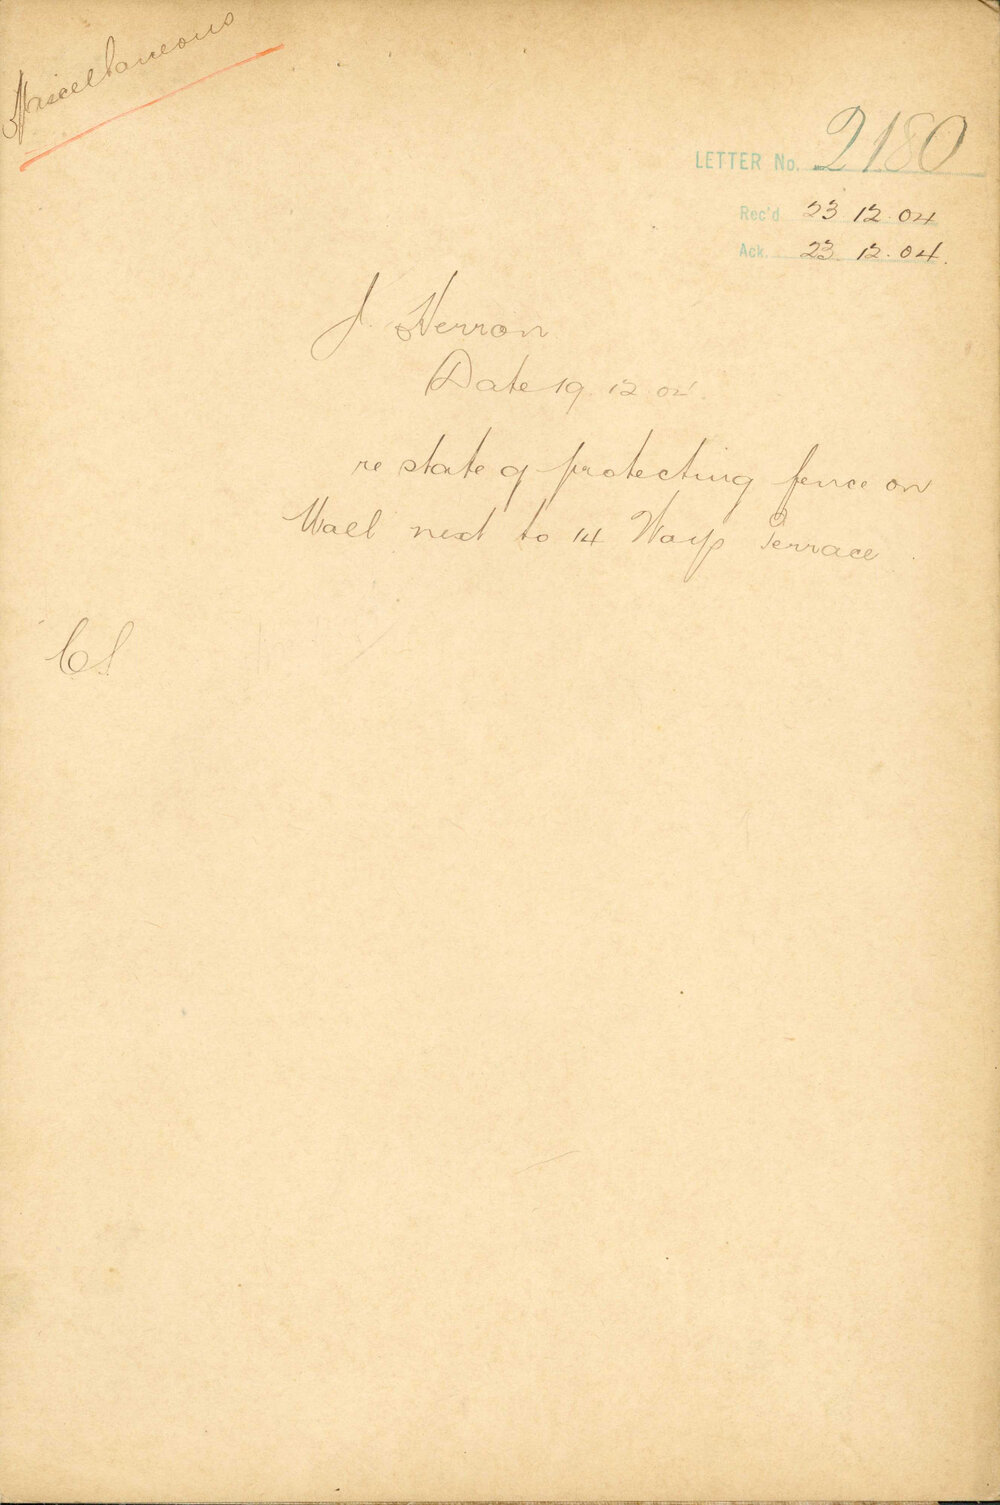 Miscellaneous
LETTER No. 2180
Rec'd 23 12 04
Ack. 23. 12. 04.
J. Herron
Date 19. 12 04.
re state of protecting fence on
Wall next to 14 Terrace
CS